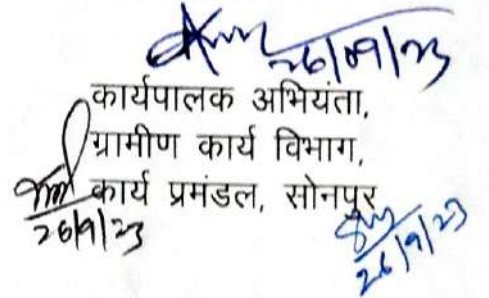 26/09/23
कार्यपालक अभियंता,
ग्रामीण कार्य विभाग,
कार्य प्रमंडल, सोनपुर
26/9/23
26/9/23